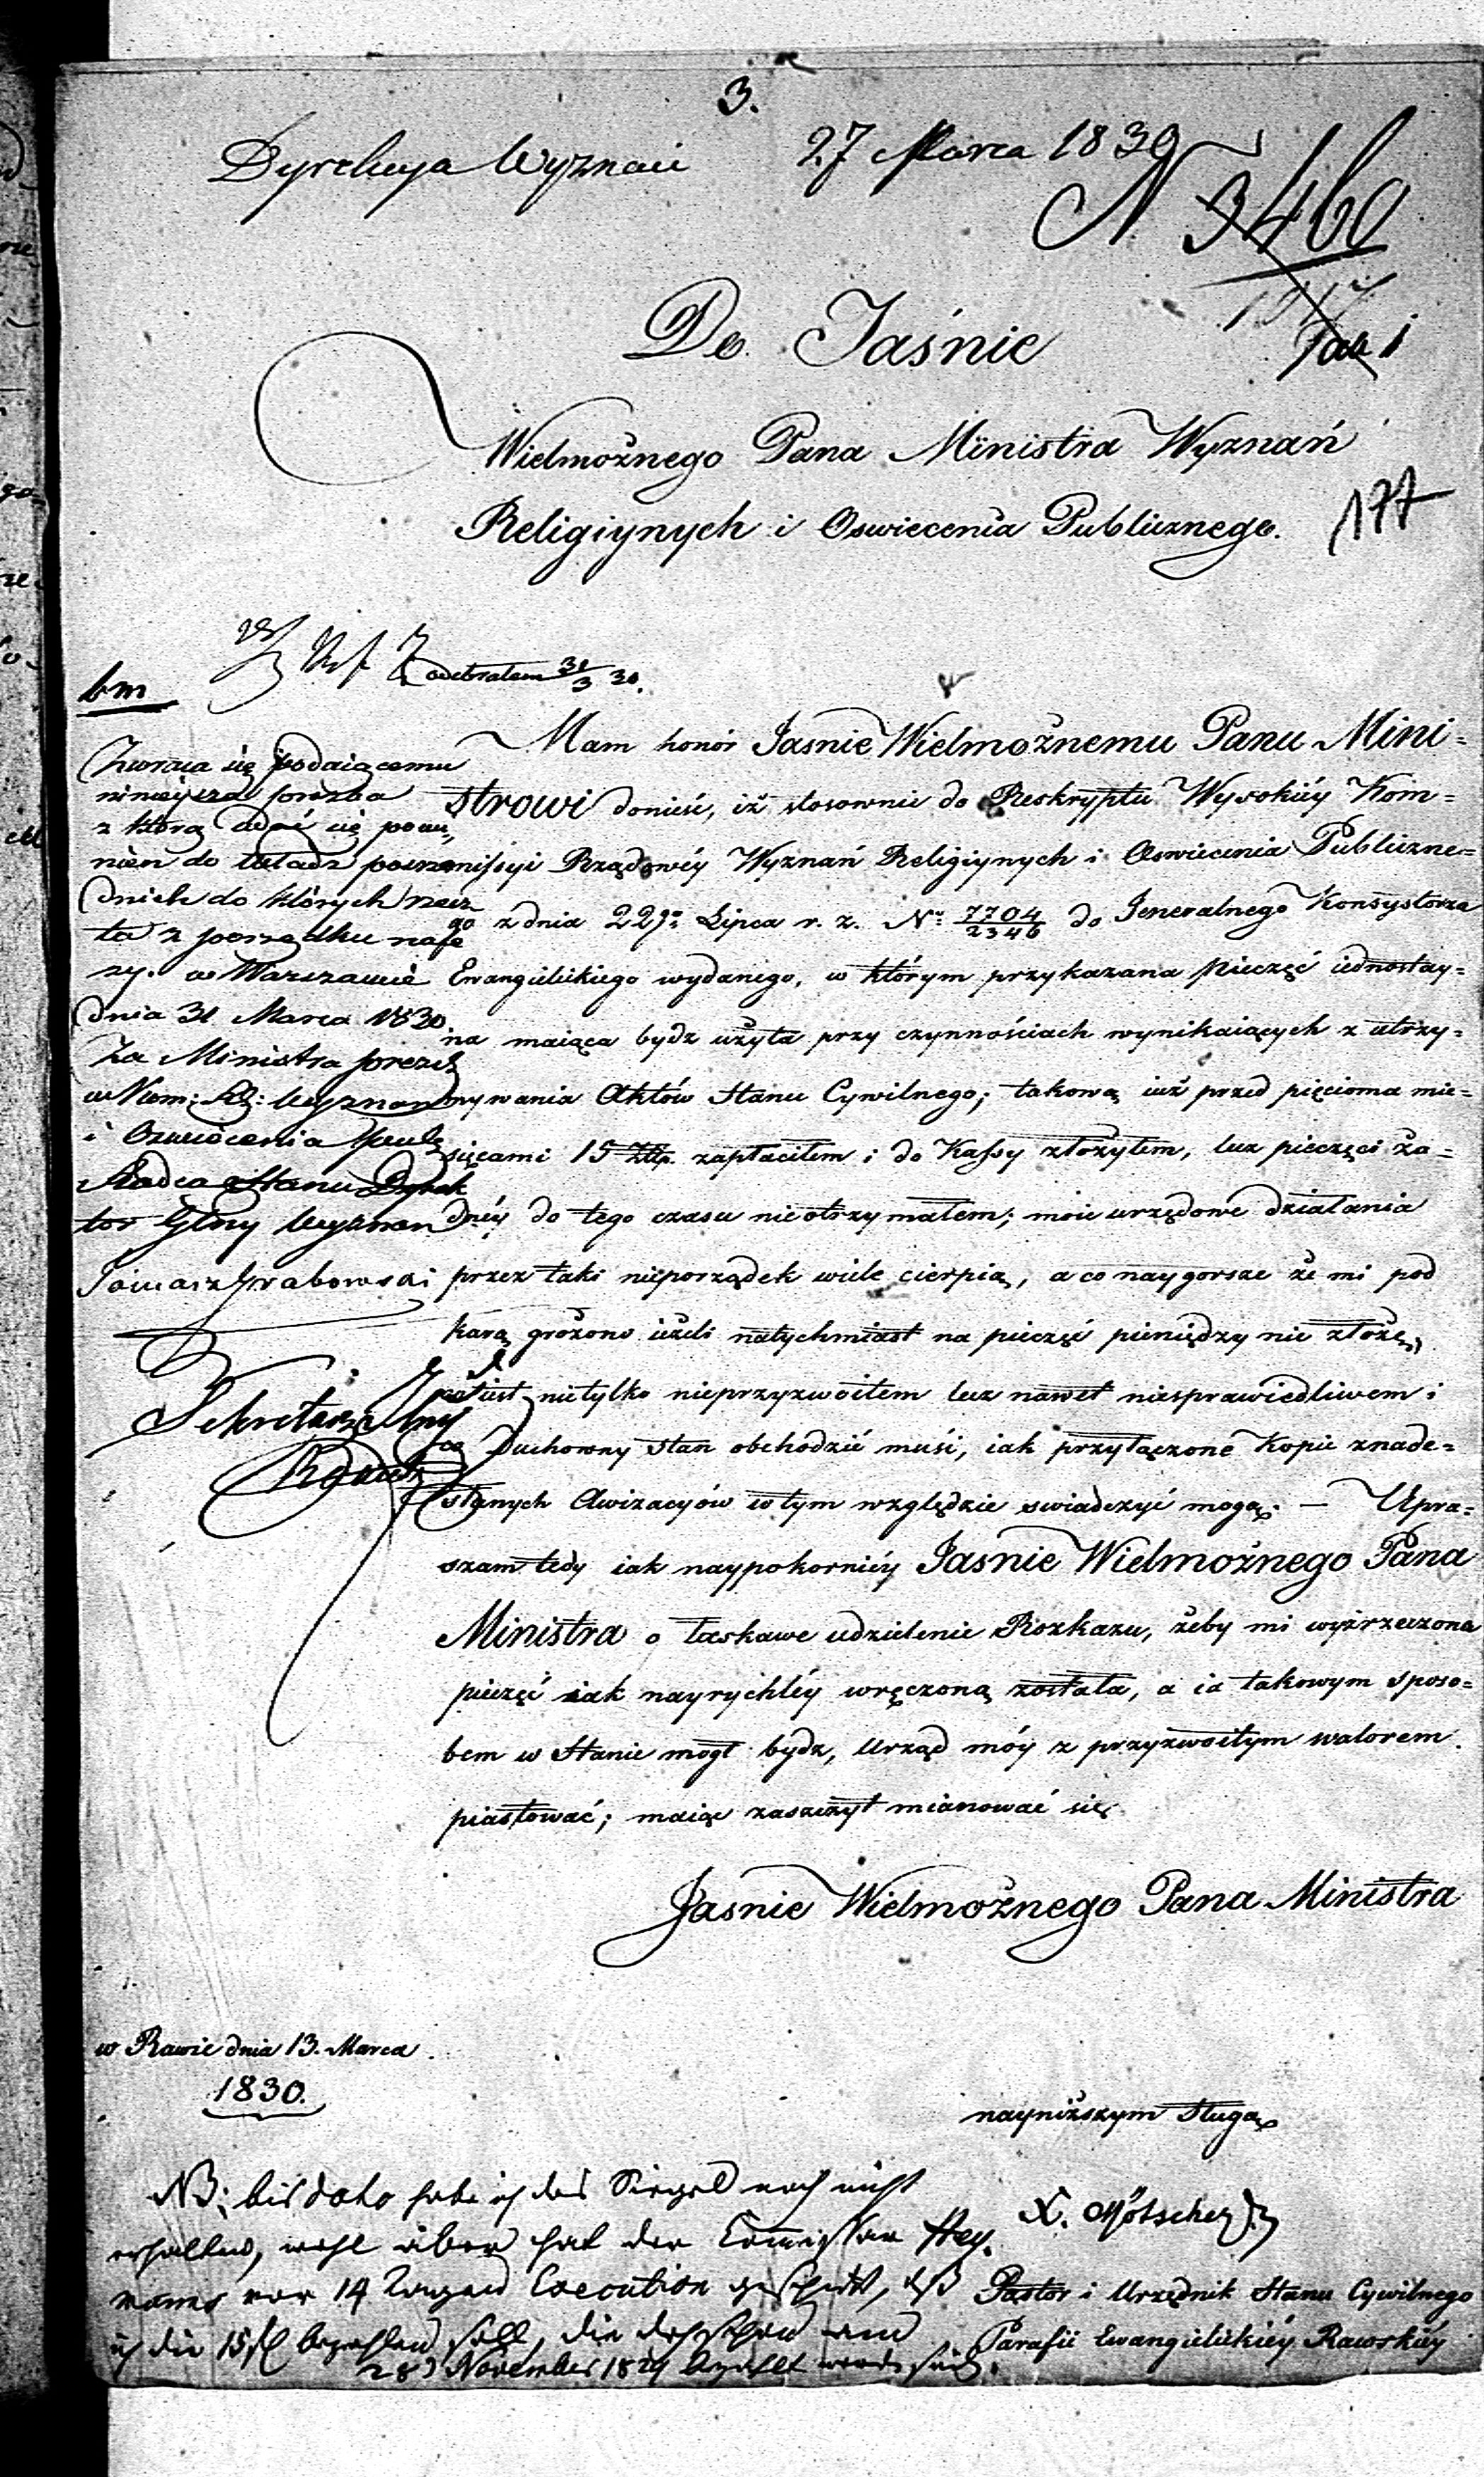 3.
Dyrekcya Wyznań 27 Marca 1830
N 3460
177
Do Jaśnie
Wielmożnego Pana Ministra Wyznań
Religiynych i Oswiecenia Publicznego.
odebrałem 31/3 30.
bm
Zwraca się podaiącemu
ninieysza prozba
z którą udać się powi
nien do władz posre
dnich do których rzecz
ta z porządku nale
zy. w Warszawie
dnia 31 Marca 1830.
Za Ministra prezed
w Kom: Rz: Wyznan
i Oswiecenia Publ
Radca Stanu Dyrek
tor Glny Wyznan
Tomasz Grabowski
Sekretarz Jlny
Mam honór Jasnie Wielmożnemu Panu Mini=
strowi donieść, iż stosownie do Reskryptu Wysokiéy Kom=
missyi Rządowéy Wyznań Religiynych i Oswiecenia Publiczne=
go z dnia 22go Lipca r. z. No 7704/2346 do Jeneralnego Konsystorza
Ewangielickiego wydanego, w którym przykazana Pieczęć iednostay=
na maiąca bydz użyta przy czynnościach wynikaiących z utrzy=
mywania Aktów Stanu Cywilnego; takową iuż przed pięcioma mie=
sięcami 15 Złp. zapłaciłem i do Kassy złożyłem, lecz pieczęci ża=
dnéy do tego czasu nie otrzymałem; moie urzędowe działania
przez taki nieporządek wiele cierpią, a co naygorsze że mi pod
karą grożono ieżeli natychmiast na pieczęć pieniędzy nie złożę,
co iest nietylko nieprzyzwoitem lecz nawet niesprawiedliwem i
co Duchowny stan obchodzić muśi, iak przyłączone Kopie znade=
słanych Awizacyów w tym względzie swiadczyć mogą. — Upra=
szam tedy iak naypokorniéy Jasnie Wielmożnego Pana
Ministra o łaskawe udzielenie Rozkazu, żeby mi wyżrzeczona
pieczęć iak nayrychléy wręczoną została, a ia takowym sposo=
bem w Stanie mogł bydz, Urząd móy z przyzwoitym walorem
piastować; maiąc zaszczyt mianować się
Jasnie Wielmożnego Pana Ministra
w Rawie dnia 13. Marca
1830.
nayniższym sługą
X. Mötscher
Pastor i Urzędnik Stanu Cywilnego
Parafii Ewangielickiéy Rawskiéy
NB; bis dato habe ich das Siegel noch nicht
erhalten, wohl aber hat der Commissar Hey,
manns vor 14 Tagen Execution geschickt, daß
ich die 15 fl bezahlen soll, die doch schon am
28 November 1829 bezahlt worden sind.